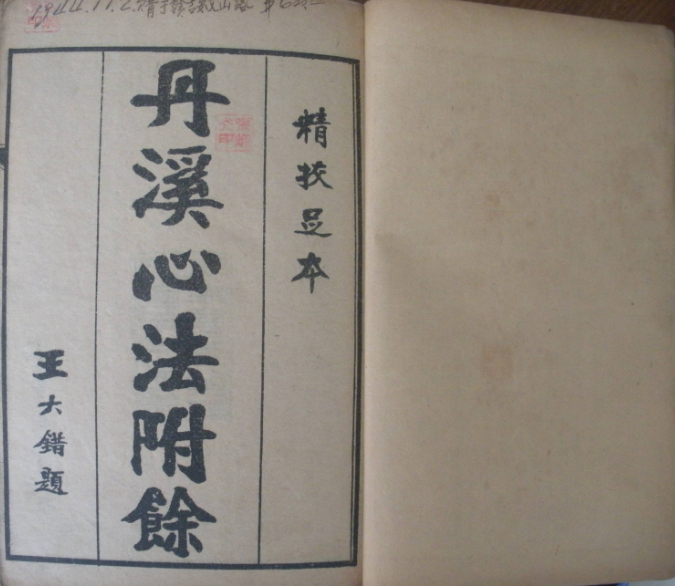 1944.11.2.
精校足本
丹溪心法附餘
王大錯題